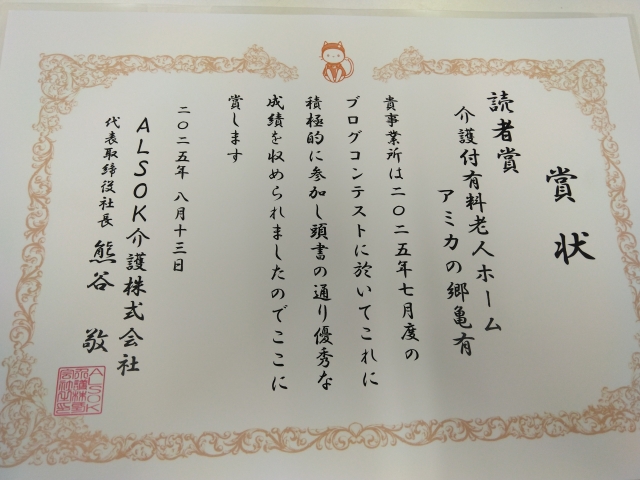 賞状
読者賞
介護付有料老人ホーム
アミカの郷亀有
貴事業所は二〇二五年七月度の
ブログコンテストに於いてこれに
積極的に参加し頭書の通り優秀な
成績を収められましたのでここに
賞します
二〇二五年 八月十三日
ALSOK介護株式会社
代表取締役社長 熊谷 敬